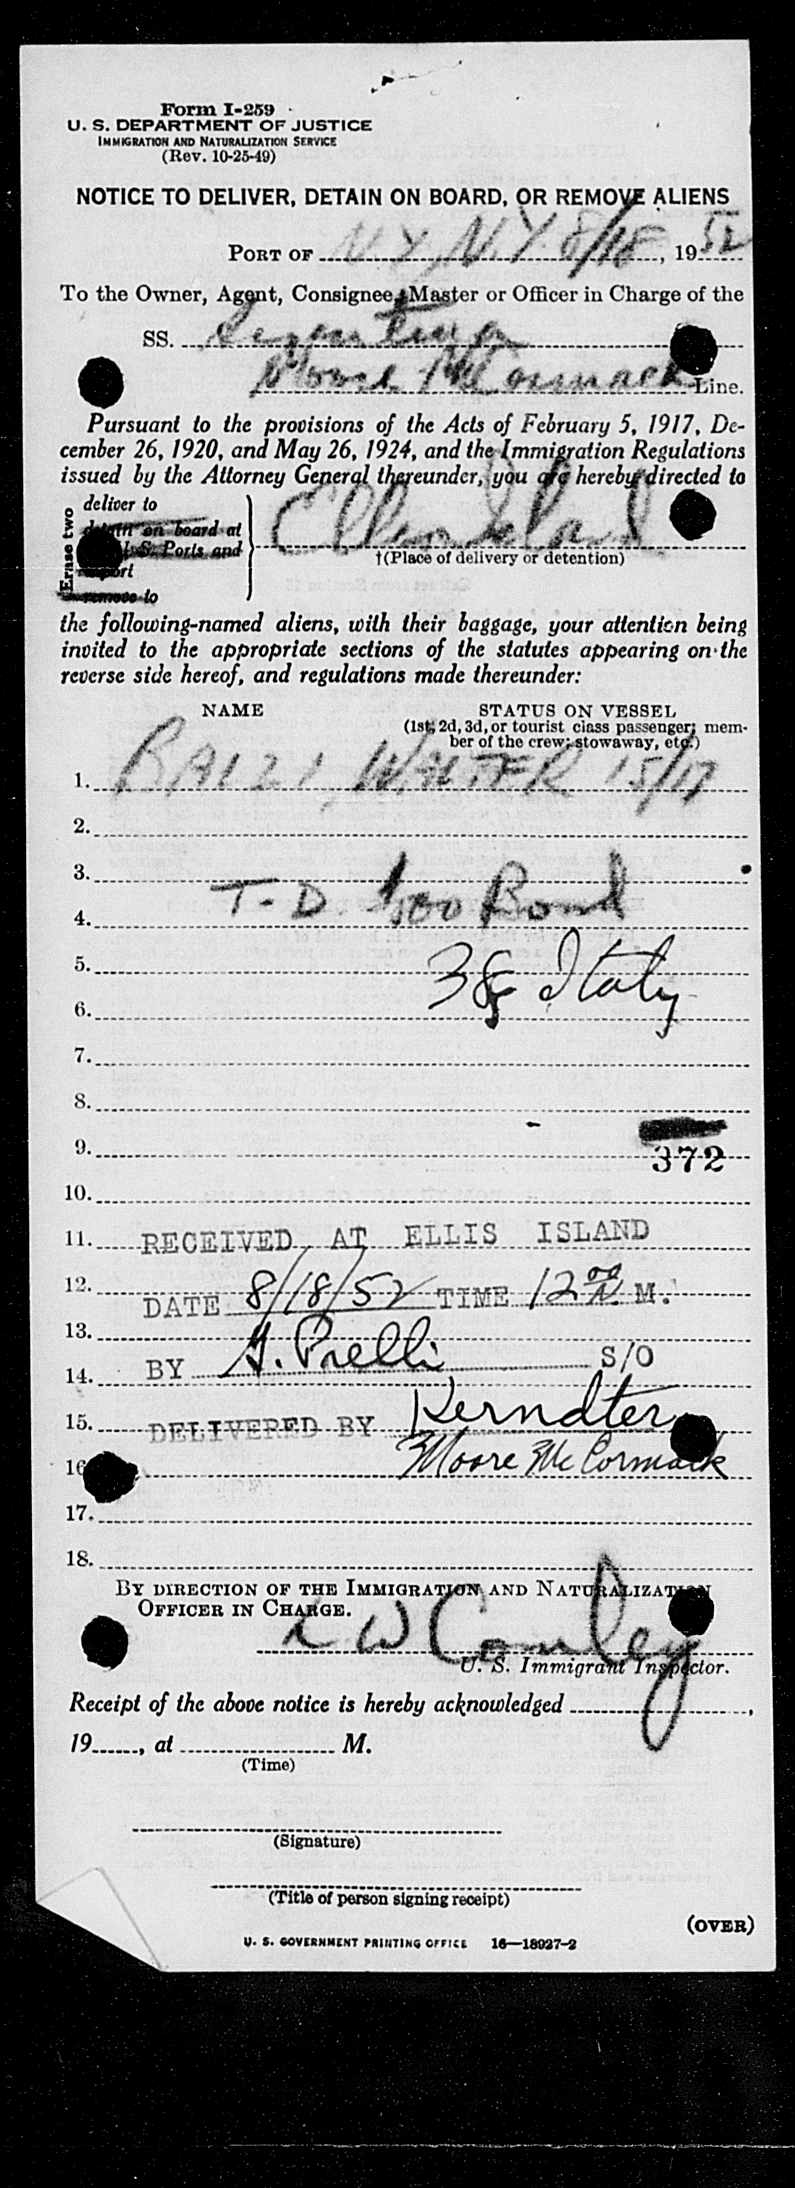 Form I-259
U. S. DEPARTMENT OF JUSTICE
IMMIGRATION AND NATURALIZATION SERVICE
(Rev. 10-25-49)
NOTICE TO DELIVER, DETAIN ON BOARD, OR REMOVE ALIENS
PORT OF N Y, N.Y. 8/18, 1952
To the Owner, Agent, Consignee, Master or Officer in Charge of the
SS. Argentina
Moore McCormack Line.
Pursuant to the provisions of the Acts of February 5, 1917, De-
cember 26, 1920, and May 26, 1924, and the Immigration Regulations
issued by the Attorney General thereunder, you are hereby directed to
Erase two
deliver to
detain on board at
U. S. Ports and
remove to
Ellis Island
†(Place of delivery or detention)
the following-named aliens, with their baggage, your attention being
invited to the appropriate sections of the statutes appearing on the
reverse side hereof, and regulations made thereunder:
NAME STATUS ON VESSEL
(1st, 2d, 3d, or tourist class passenger; mem-
ber of the crew; stowaway, etc.)
1. BALZI, WALTER 15/17
2.
3.
T-D $500 Bond
4.
5.
38 Italy
6.
7.
8.
9.
372
10.
11. RECEIVED AT ELLIS ISLAND
12. DATE 8/18/52 TIME 12 00 N. M.
13.
14. BY G. Prelli S/O
15. DELIVERED BY Kerndter
16 Moore McCormack
17.
18.
BY DIRECTION OF THE IMMIGRATION AND NATURALIZATION
OFFICER IN CHARGE.
L W Conley
U. S. Immigrant Inspector.
Receipt of the above notice is hereby acknowledged ,
19 , at M.
(Time)
(Signature)
(Title of person signing receipt)
(OVER)
U. S. GOVERNMENT PRINTING OFFICE 16—18927-2